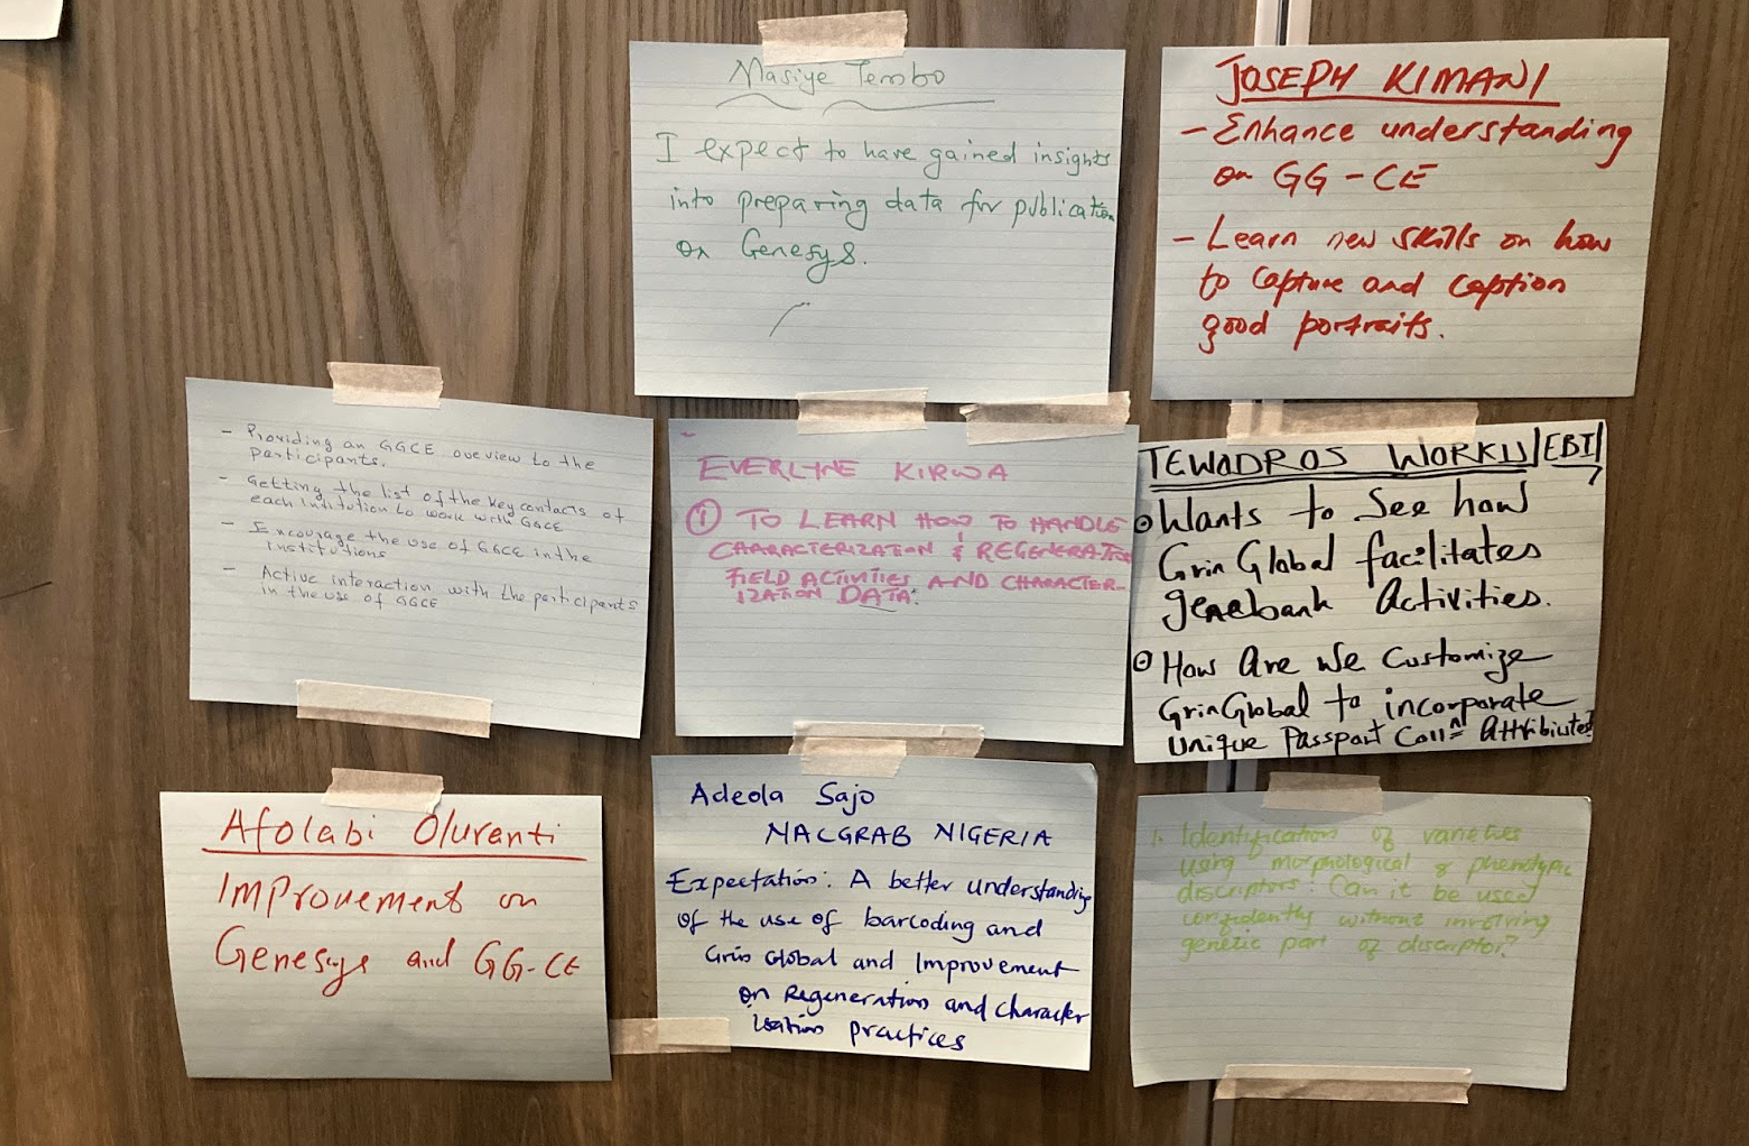 Masiye Tembo
I expect to have gained insights
into preparing data for publication
on Genesys.
JOSEPH KIMANI
- Enhance understanding
on GG-CE
- Learn new skills on how
to capture and caption
good portraits.
- Providing an GGCE overview to the
participants.
- Getting the list of the key contacts of
each institution to work with GGCE
- Encourage the use of GGCE in the
institutions
- Active interaction with the participants
in the use of GGCE
EVERLINE KIRWA
① TO LEARN HOW TO HANDLE
CHARACTERIZATION & REGENERATION
FIELD ACTIVITIES AND CHARACTER-
IZATION DATA.
TEWODROS WORKU/EBI/
Wants to See how
Grin Global facilitates
genebank Activities.
How Are We Customize
GrinGlobal to incorporate
Unique Passport Attributes?
Afolabi Oluranti
Improvement on
Genesys and GG-CE
Adeola Sajo
NACGRAB NIGERIA
Expectation: A better understanding
of the use of barcoding and
Grin Global and Improvement
on Regeneration and character
isation practices
1. Identification of varieties
using morphological & phenotypic
discriptors: Can it be used
confidently without involving
genetic part of discriptor?